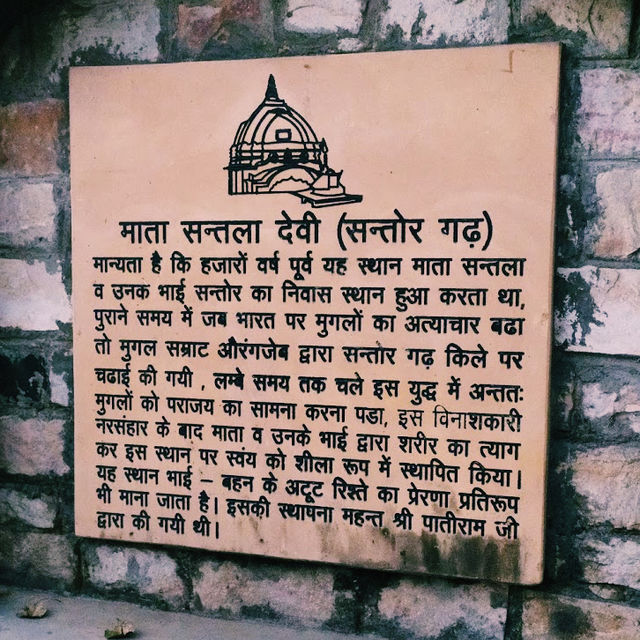 माता सन्तला देवी (सन्तोर गढ़)
मान्यता है कि हजारों वर्ष पूर्व यह स्थान माता सन्तला
व उनके भाई सन्तोर का निवास स्थान हुआ करता था,
पुराने समय में जब भारत पर मुगलों का अत्याचार बढा
तो मुगल सम्राट औरंगजेब द्वारा सन्तोर गढ़ किले पर
चढाई की गयी , लम्बे समय तक चले इस युद्ध में अन्ततः
मुगलों को पराजय का सामना करना पडा, इस विनाशकारी
नरसंहार के बाद माता व उनके भाई द्वारा शरीर का त्याग
कर इस स्थान पर स्वंय को शीला रूप में स्थापित किया।
यह स्थान भाई – बहन के अटूट रिश्ते का प्रेरणा प्रतिरूप
भी माना जाता है। इसकी स्थापना महन्त श्री पातीराम जी
द्वारा की गयी थी।